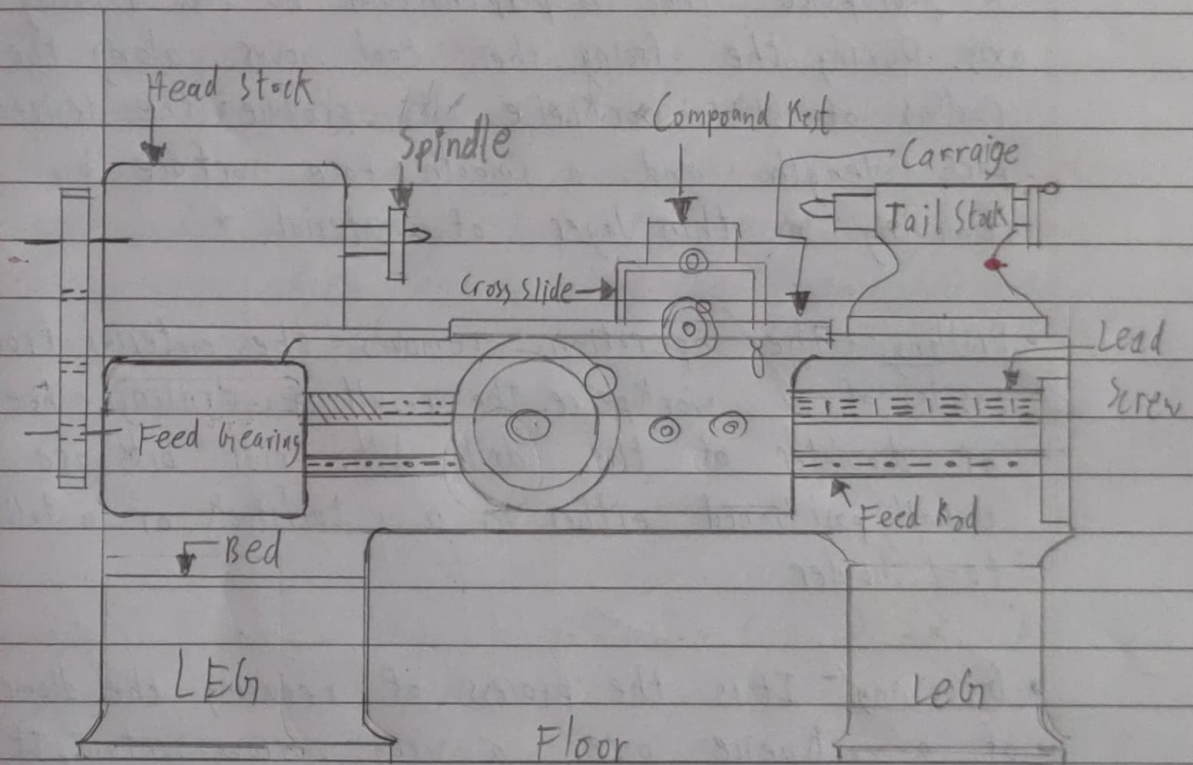 Head Stock
Spindle
Compound Rest
Carraige
Tail Stock
Cross Slide
Lead
Screw
Feed Gearing
Feed Rod
Bed
LEG
LeG
Floor